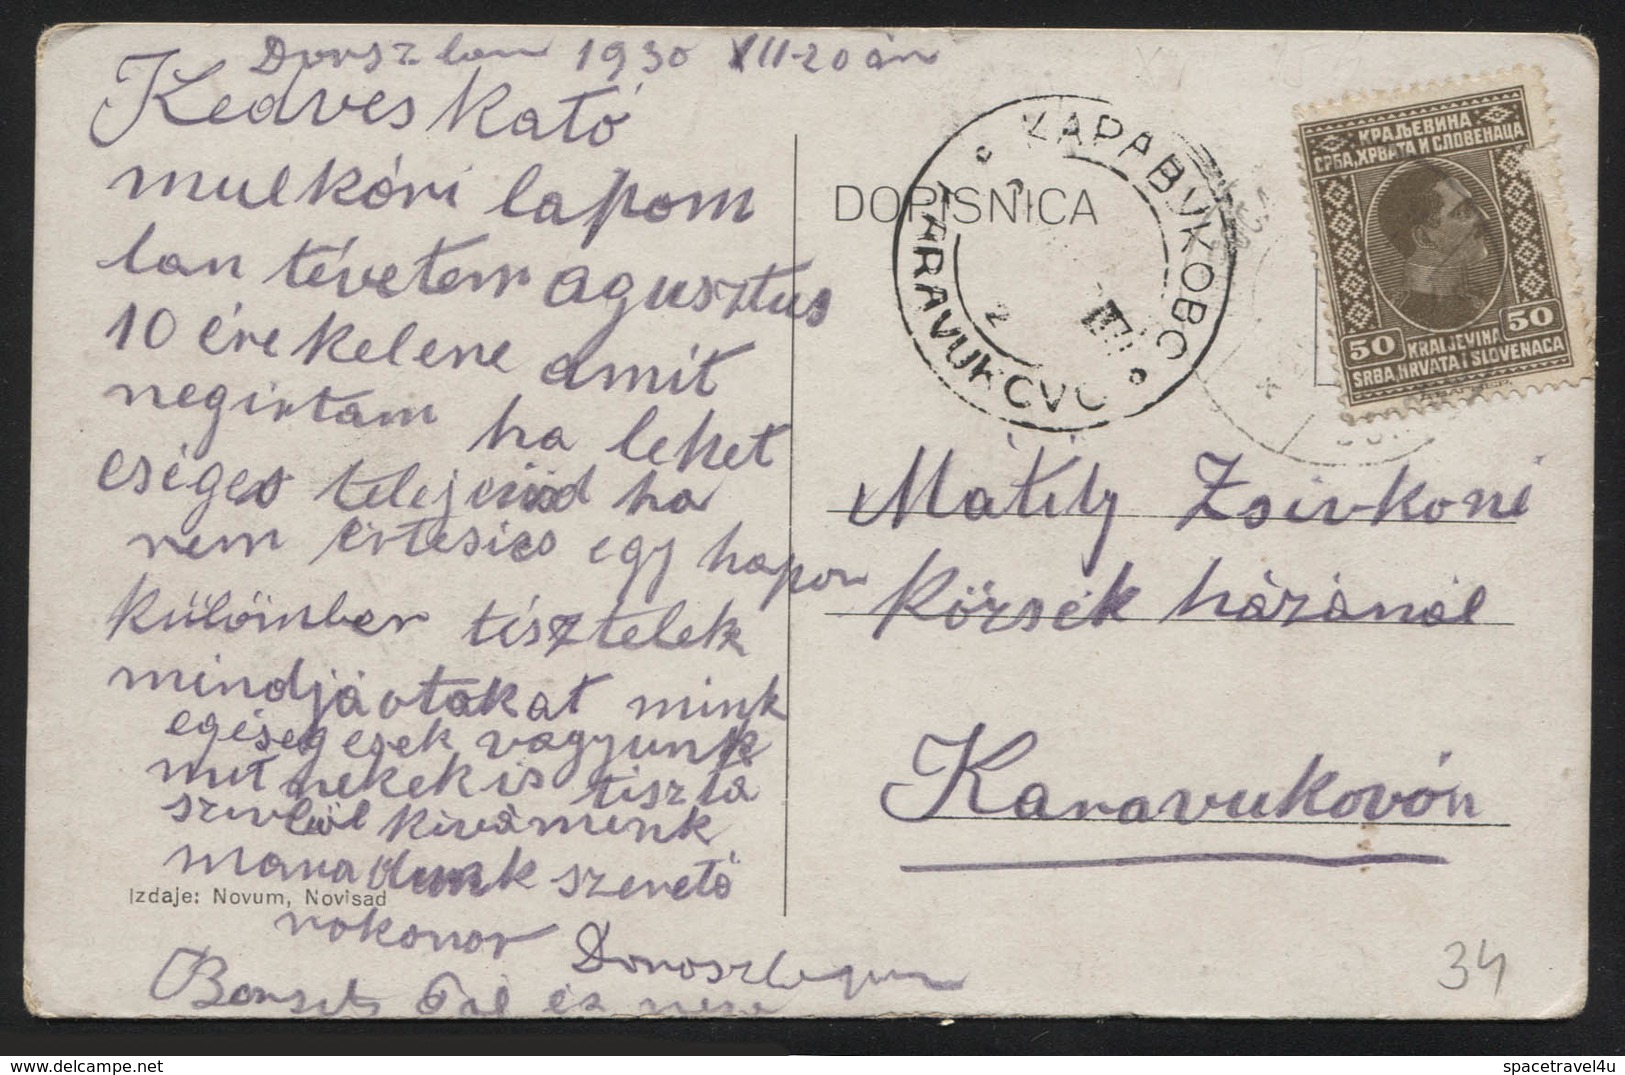 Doroszlon 1930 VII-20 án
Kedves Kató
mulkóri lapom
ban tévetem agusztus
10 ére kelene amit
megirtam ha lehet
eséges telejesüd ha
nem értesics egy hapon
külömber tisztelek
mindjáotokat mink
egéségesek vagyunk
mit nekek is tiszta
szivből kivámink
maradunk szerető
rokonor Doroszlogun
Pál és neje
Izdaje: Novum, Novisad
DOPISNICA
КАРАВУКОВО
KARAVUKOVO
КРАЉЕВИНА
СРБА, ХРВАТА И СЛОВЕНАЦА
50 50
KRALJEVINA
SRBA, HRVATA I SLOVENACA
Mátily Zsivkoné
Körsék házánál
Karavukován
34
spacetravel4u
www.delcampe.net